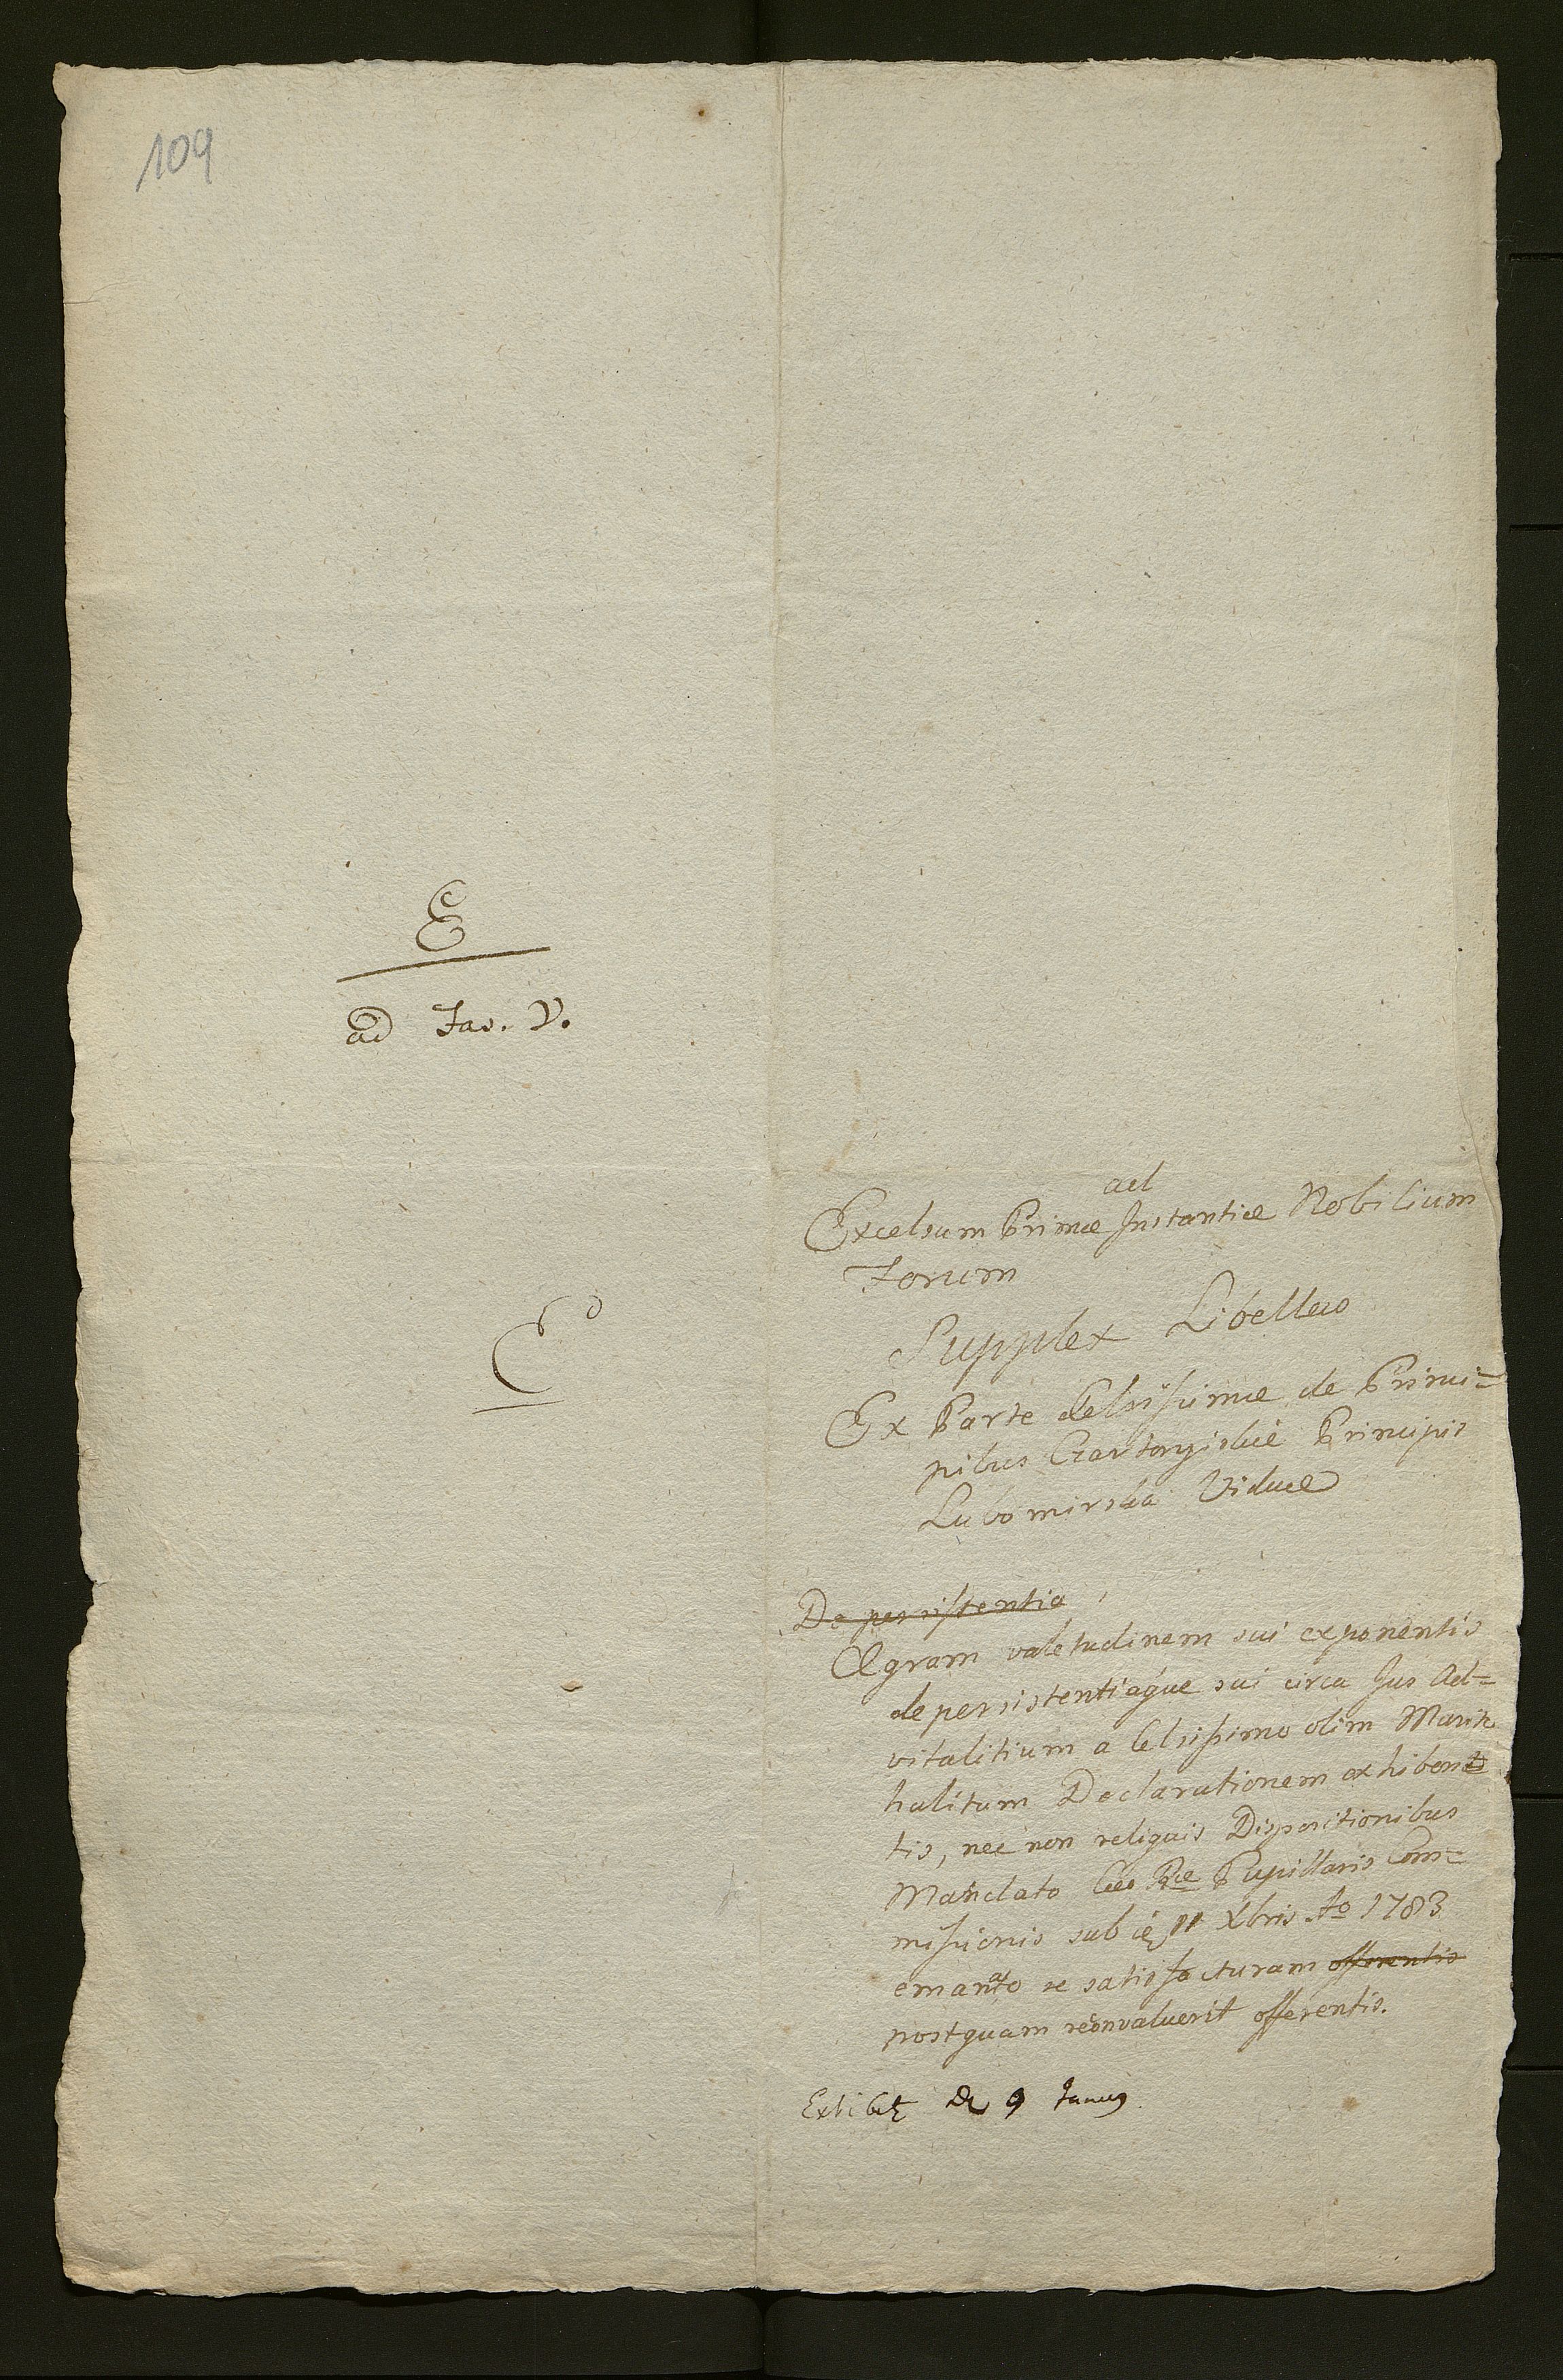 109
E
ad Fas. V.
C
ad
Excelsum Primæ Instantiæ Nobilium
Forum
Supplex Libellus
Ex Parte Celsissimæ de Princi=
pibus Czartoryscie Principis
Lubomirska Viduæ
De persistentia
Ægram valetudinem sui exponentis
de persistentiaque sui circa Jus Ad=
vitalitium a Celsissimo olim Marito
halitum Declarationem exhiben
tis, nec non reliquis Dispositionibus
Mandato Cæo Rae Pupillaris Com=
missionis sub 11 Xbris Ao 1783
emanato se satisfacturam offerentis
postquam reconvaluerit offerentis.
9